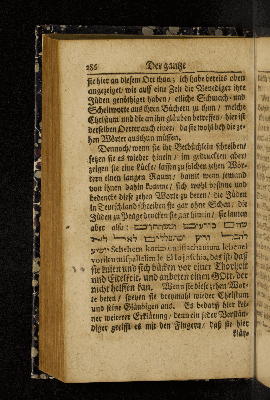 286 Der gantze
sie hier an diesem Ort thun; ich habe bereits oben
angezeiget/ wie auff eine Zeit die Venediger ihre
Jüden genöthiget haben/ etliche Schmach- und
Scheltworte aus ihren Büchern zu thun/ welche
Christum und die an ihn gläuben betreffen/ hier ist
derselben Oerter auch einer/ da sie wohl bey die ze-
hen Wörter austhun müssen.
Dennoch/ wenn sie ihr Betbüchlein schreiben/
setzen sie es wieder hinein/ im gedruckten aber/
zeigen sie eine Lücke/ lassen zu solchen zehen Wör-
tern einen langen Raum/ damit wenn jemand
von ihnen dahin komme/ sich wohl besinne und
bedencke diese zehen Worte zu beten/ die Jüden
in Teutschland schreiben sie gar ohne Scheu/ die
Jüden zu Prage drucken sie gar hinein/ sie lauten
aber also:
lehevel
das ist/ daß
sie knien und sich bücken vor einer Thorheit
und Eitelkeit/ und anbeten einen GOtt/ der
nicht helffen kan. Wenn sie diese zehen Wor-
te beten/ speyen sie dreymahl wieder Christum
und seine Gläubigen aus. Es bedarff hier kei-
ner weiterer Erklärung/ denn ein jeder Verstän-
diger greifft es mit den Fingern/ daß sie hier